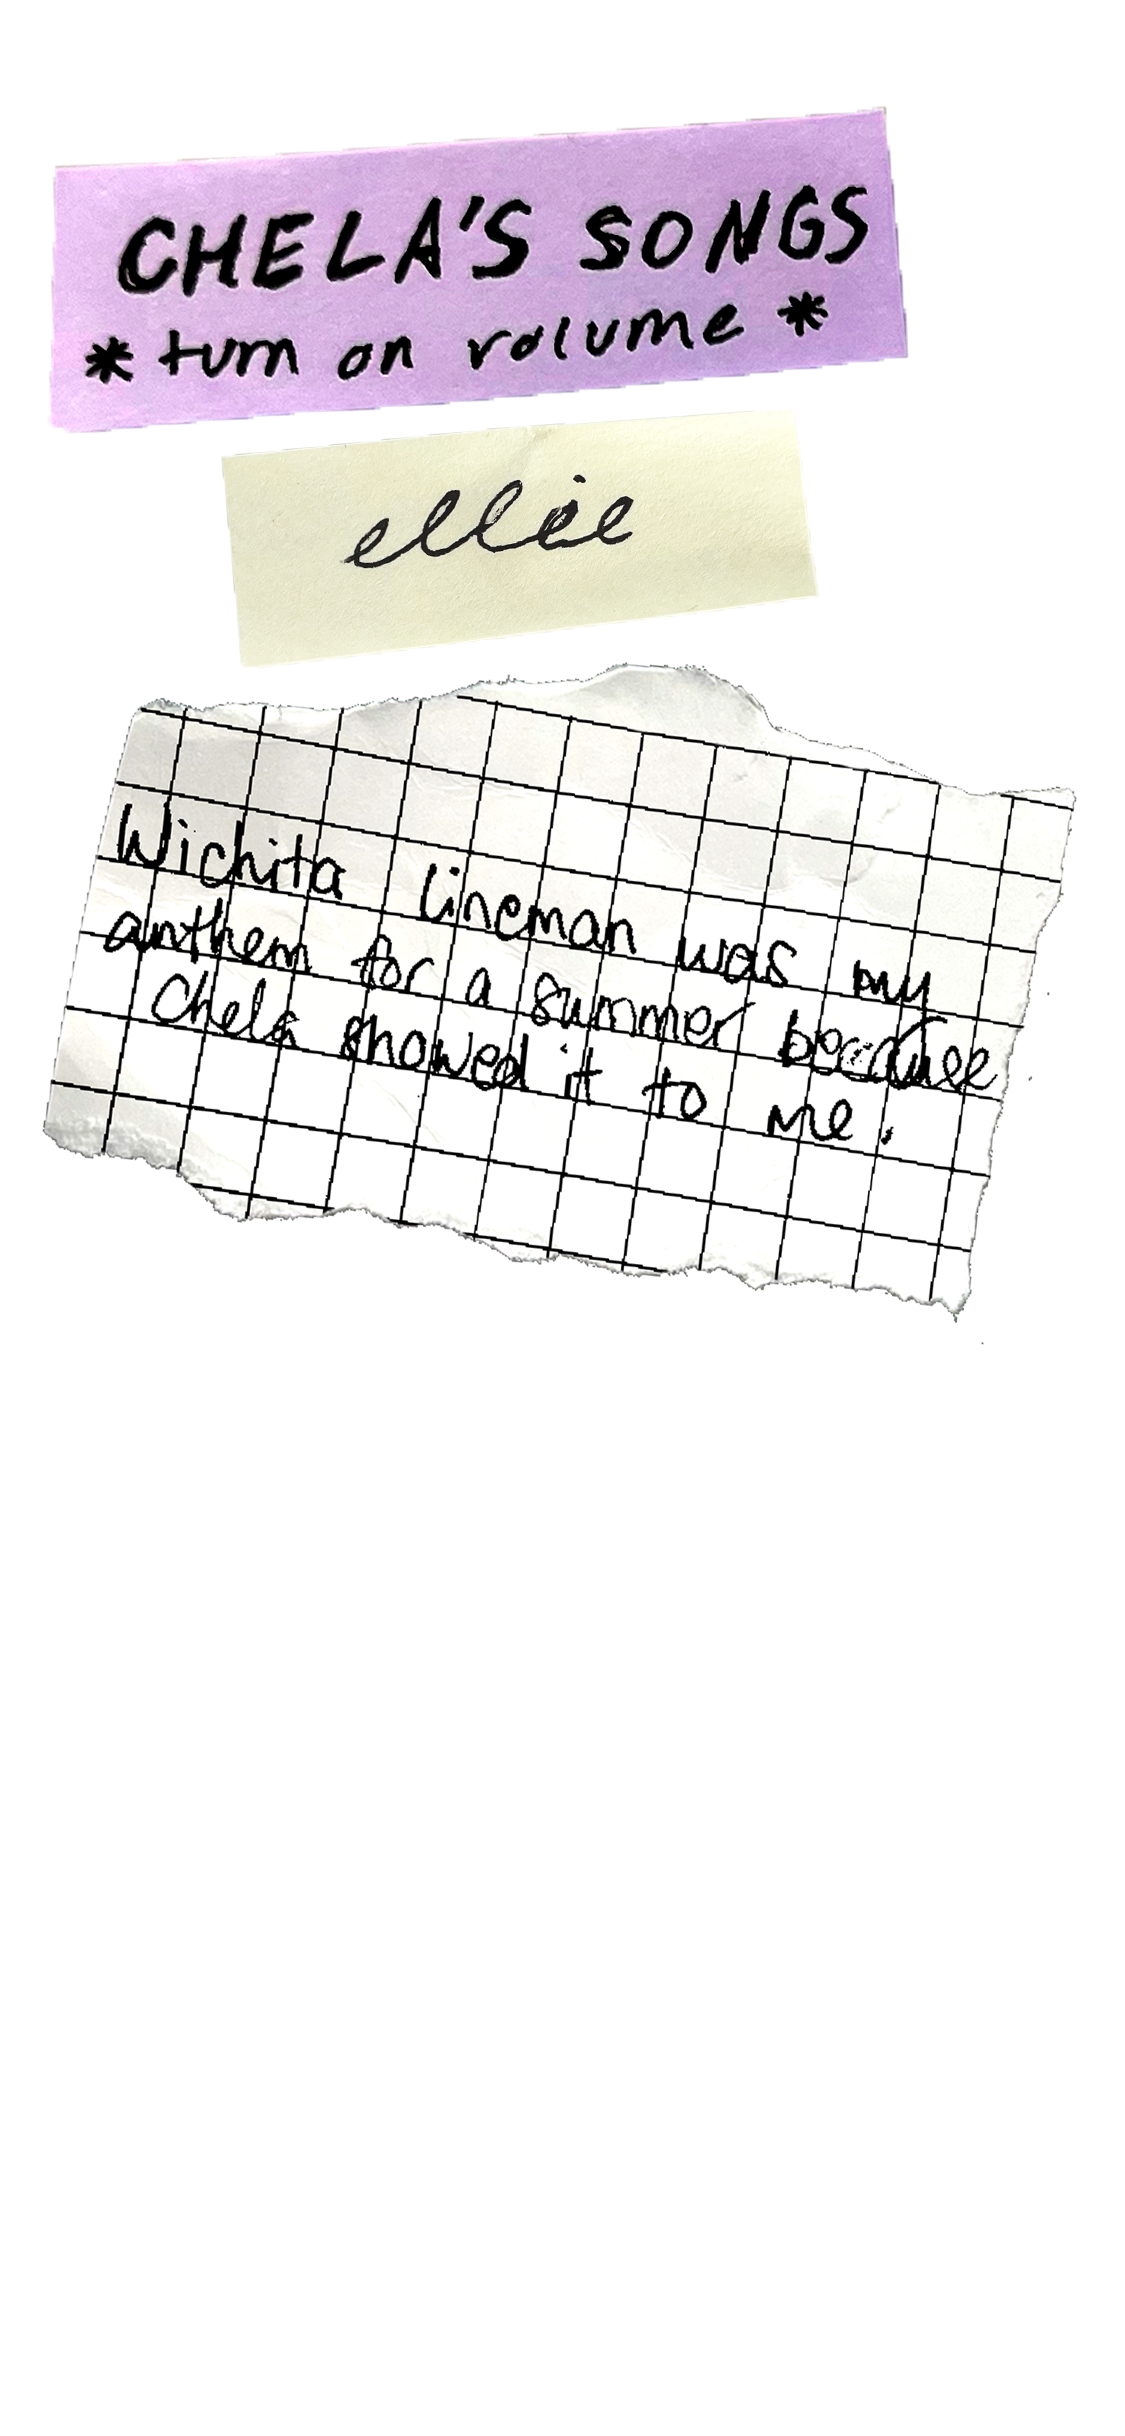 CHELA'S SONGS
* turn on volume *
ellie
Wichita Lineman was my
anthem for a summer because
Chela showed it to me.